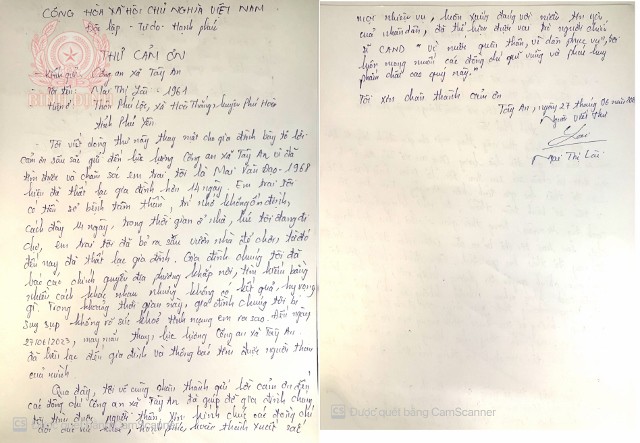 CỘNG HÒA XÃ HỘI CHỦ NGHĨA VIỆT NAM
Độc lập - Tự do - Hạnh phúc
THƯ CẢM ƠN
Kính gửi: Công an xã Tây An
- Tôi tên: Mai Thị Lài - 1961
- Hiện ở: Thôn Phú Lộc, xã Hòa Thắng, huyện Phú Hòa
tỉnh Phú Yên
- Tôi viết dòng thư này thay mặt cho gia đình bày tỏ lời
cảm ơn sâu sắc gửi đến lực lượng Công an xã Tây An vì đã
tìm thấy và chăm sóc em trai tôi là Mai Văn Đạo - 1968
hiện đã thất lạc gia đình hơn 14 ngày. Em trai tôi
có tiền sử bệnh tâm thần, trí nhớ không ổn định,
cách đây 14 ngày, trong thời gian ở nhà, lúc tôi đang đi
chợ, em trai tôi đã bỏ ra sau vườn nhà để chơi, từ đó
đến nay đã thất lạc gia đình. Gia đình chúng tôi đã
báo cáo chính quyền địa phương khắp nơi, tìm kiếm bằng
nhiều cách khác nhau nhưng không có kết quả, hy vọng
gì. Trong khoảng thời gian này, gia đình chúng tôi bị
suy sụp không rõ sức khoẻ tính mạng em ra sao. Đến ngày
27/06/2023, may mắn thay, lực lượng Công an xã Tây An
đã liên lạc đến gia đình và thông báo tìm được người thân
của mình
Qua đây, tôi vô cùng chân thành gửi lời cảm ơn đến
các đồng chí Công an xã Tây An đã giúp đỡ gia đình chúng
tôi tìm được người thân. Xin kính chúc các đồng chí
dồi dào sức khỏe, hạnh phúc, hoàn thành xuất sắc
mọi nhiệm vụ, luôn xứng đáng với niềm tin yêu
của nhân dân, đã thể hiện được vai trò người chiến
sĩ CAND "vì nước quên thân, vì dân phục vụ", tôi
luôn mong muốn các đồng chí giữ vững và phát huy
phẩm chất cao quý này."
Tôi xin chân thành cảm ơn
Tây An, ngày 27 tháng 06 năm
Người viết thư
Lài
Mai Thị Lài
CS Được quét bằng CamScanner
CS Được quét bằng CamScanner